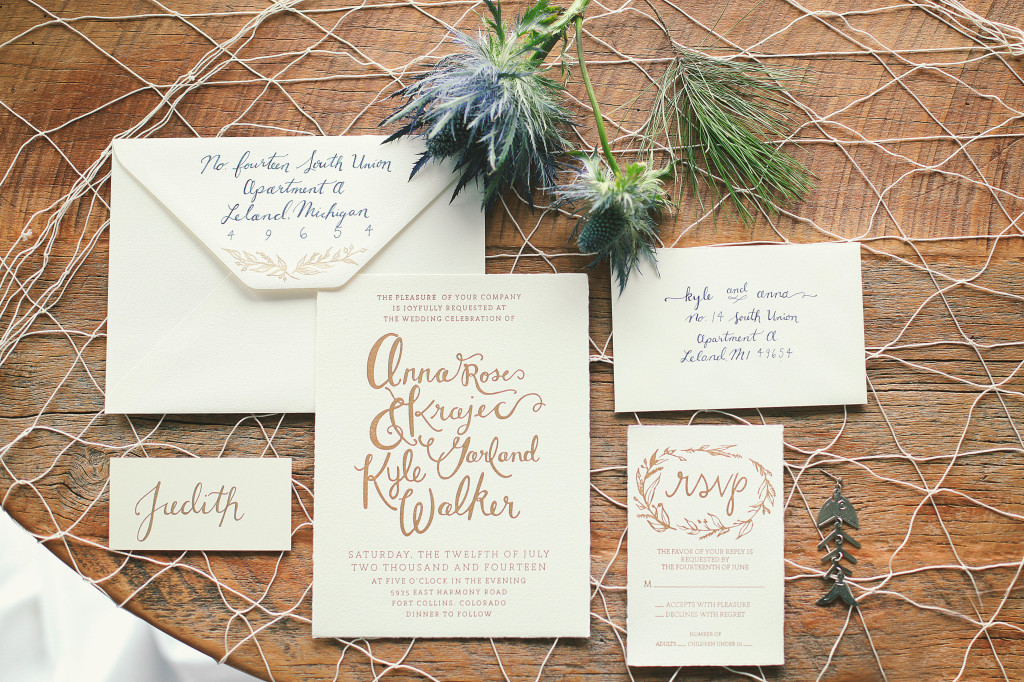 No. fourteen South Union
Apartment A
Leland, Michigan
4 9 6 5 4
THE PLEASURE OF YOUR COMPANY
IS JOYFULLY REQUESTED AT
THE WEDDING CELEBRATION OF
Anna Rose
Krajec
&
Kyle Garland
Walker
SATURDAY, THE TWELFTH OF JULY
TWO THOUSAND AND FOURTEEN
AT FIVE O'CLOCK IN THE EVENING
5935 EAST HARMONY ROAD
FORT COLLINS, COLORADO
DINNER TO FOLLOW
kyle and anna
No. 14 South Union
Apartment A
Leland MI 49654
Judith
rsvp
THE FAVOR OF YOUR REPLY IS
REQUESTED BY
THE FOURTEENTH OF JUNE
M
ACCEPTS WITH PLEASURE
DECLINES WITH REGRET
NUMBER OF
ADULTS CHILDREN UNDER 10